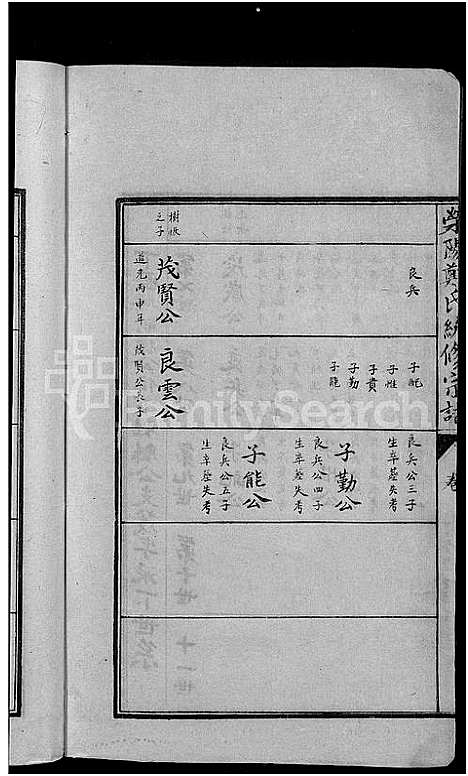 滎陽鄭氏統修宗譜
卷
樹
之子
茂賢公
道光丙申年
良兵
良雲公
茂賢公長子
子乾
子性
子貴
子勤
子能
良兵公三子
生卒葬失考
子勤公
良兵公四子
生卒葬失考
子能公
良兵公五子
生卒葬失考
FamilySearch